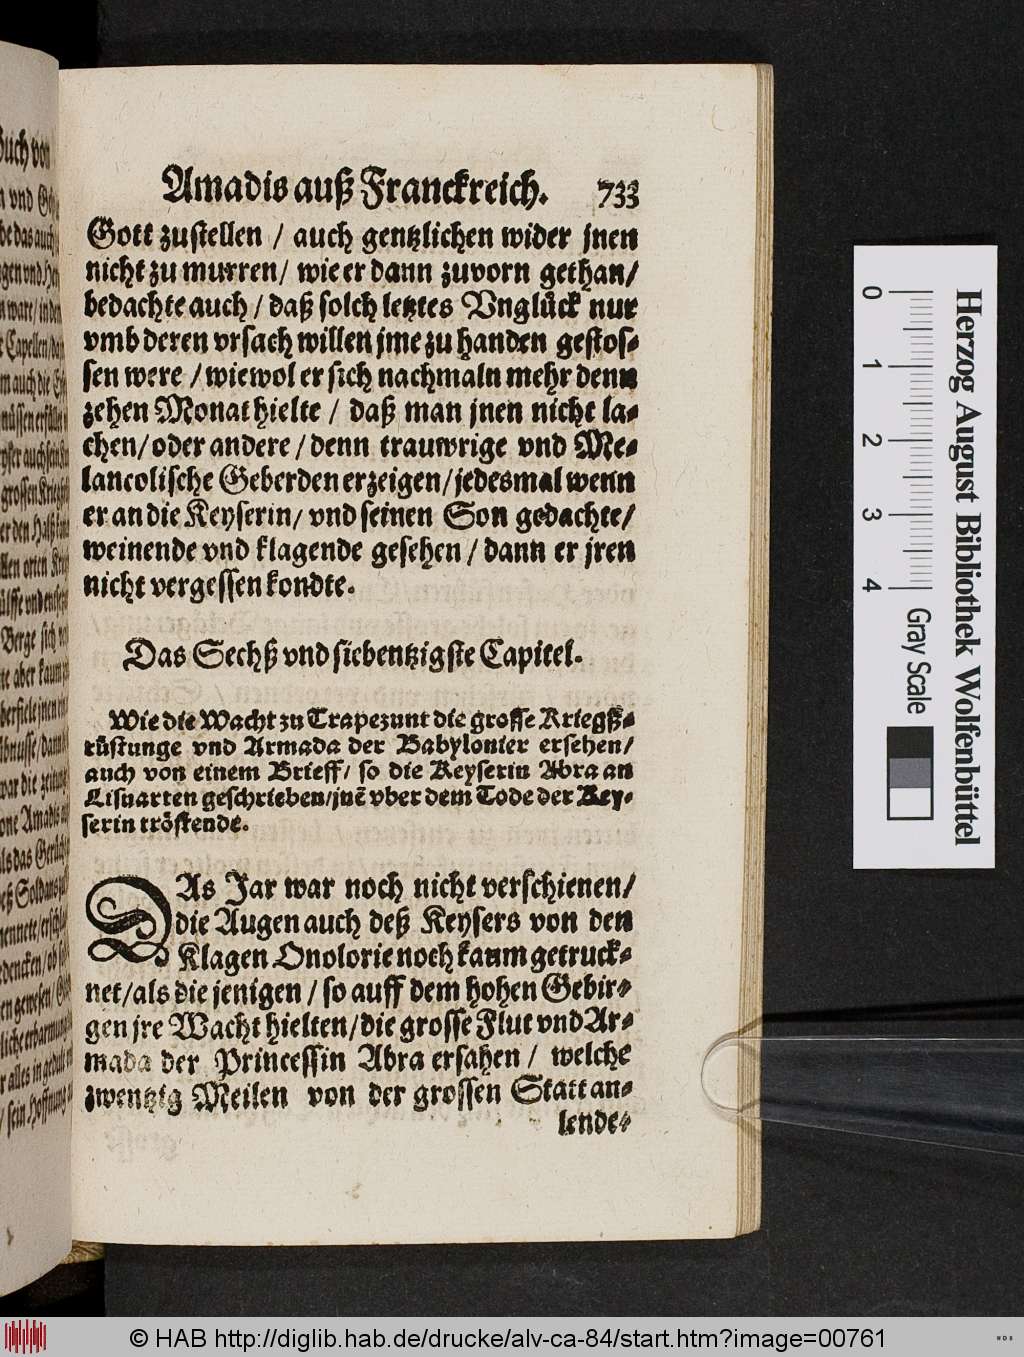 Amadis auß Franckreich. 733
Gott zustellen / auch gentzlichen wider jnen
nicht zu murren / wie er dann zuvorn gethan /
bedachte auch / daß solch letztes Vnglück nur
vmb deren vrsach willen jme zu handen gestos-
sen were / wiewol er sich nachmaln mehr denn
zehen Monat hielte / daß man jnen nicht la-
chen / oder andere / denn trauwrige vnd Me-
lancolische Geberden erzeigen / jedesmal wenn
er an die Keyserin / vnd seinen Son gedachte /
weinende vnd klagende gesehen / dann er jren
nicht vergessen kondte.
Das Sechß vnd siebentzigste Capitel.
Wie die Wacht zu Trapezunt die grosse Kriegß-
rüstunge vnd Armada der Babylonier ersehen /
auch von einem Brieff / so die Keyserin Abra an
Lisuarten geschrieben / jnē vber dem Tode der Key-
serin tröstende.
DAs Jar war noch nicht verschienen /
die Augen auch deß Keysers von den
Klagen Onolorie noch kaum getruck-
net / als die jenigen / so auff dem hohen Gebir-
gen jre Wacht hielten / die grosse Flut vnd Ar-
mada der Princessin Abra ersahen / welche
zwentzig Meilen von der grossen Statt an-
lende-
Buch von
n vnd
be das auch
n wart / in den
Capellen /
m auch die
müssen
grossen
er den Halß
llen orten
vnd
Berge sich
te aber kaum
war die zeitung
one Amadis
als das
deß Soldans
nennete /
dencken / ob
en gewesen /
liche erbarmung
r alles in gedult
/ sein Hoffnung
0 1 2 3 4
Herzog August Bibliothek Wolfenbüttel
Gray Scale
© HAB http://diglib.hab.de/drucke/alv-ca-84/start.htm?image=00761
HAB